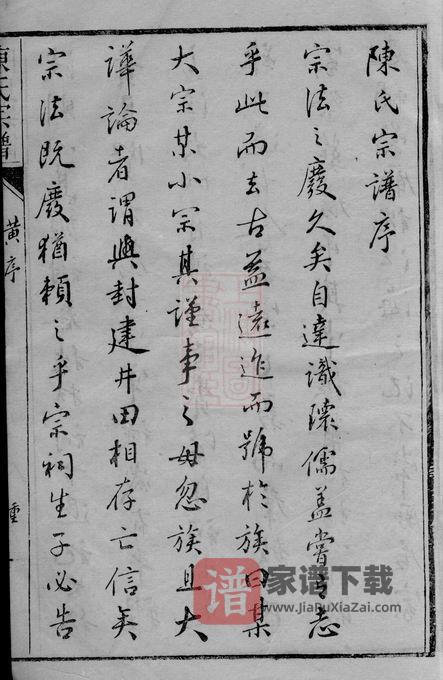 陳氏宗譜序
宗法之廢久矣自達識瓌儒蓋嘗有志
乎此而去古益遠迨而號於族曰某
大宗某小宗其謹事之毋忽族且大
譁論者謂與封建井田相存亡信矣
宗法既廢猶賴之乎宗祠生子必告
陳氏宗譜
黃序
譜
家谱下载
www.JiaPuXiaZai.com